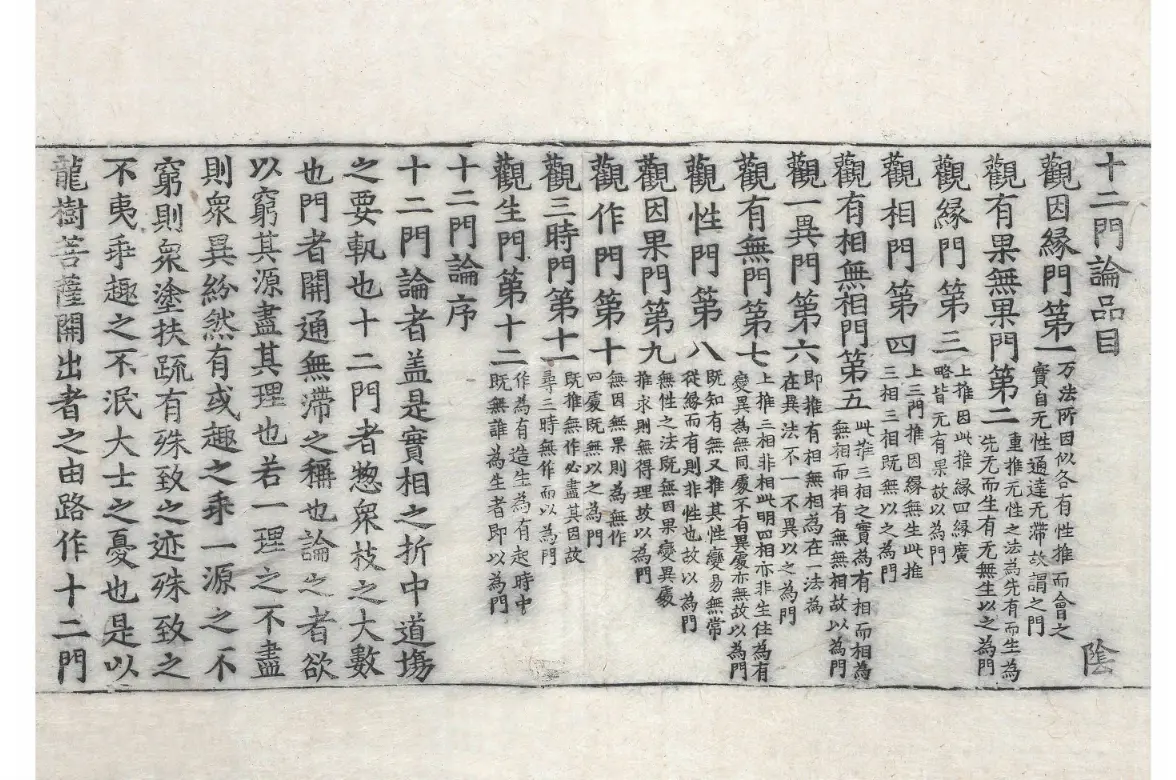 十二門論品目 陰
觀因緣門第一
万法所因似各有性推而會之
實自无性通達无滯故謂之門
觀有果無果門第二
重推无性之法為先有而生為
先无而生有无無生以之為門
觀緣門第三
上推因此推緣四緣廣
略皆无有果故以為門
觀相門第四
上三門推因緣無生此推
三相三相既無以之為門
觀有相無相門第五
此推三相之實為有相而相為
無相而相有無無相故以為門
觀一異門第六
即推有相無相為在一法為
在異法不一不異以之為門
觀有無門第七
上推三相非相此明四相亦非生住為有
變異為無同處不有異處亦無故以為門
觀性門第八
既知有無又推其性變易無常
從緣而有則非性也故以為門
觀因果門第九
無性之法既無因果變異處
推求則無得理故以為門
觀作門第十
無因無果則為無作
四處既無以之為門
觀三時門第十一
既推無作必盡其因故
尋三時無作而以為門
觀生門第十二
作為有造生為有起時中
既無誰為生者即以為門
十二門論序
十二門論者盖是實相之折中道塲
之要軌也十二門者惣衆枝之大數
也門者開通無滯之稱也論之者欲
以窮其源盡其理也若一理之不盡
則衆異紛然有或趣之乖一源之不
窮則衆塗扶疏有殊致之迹殊致之
不夷乖趣之不泯大士之憂也是以
龍樹菩薩開出者之由路作十二門